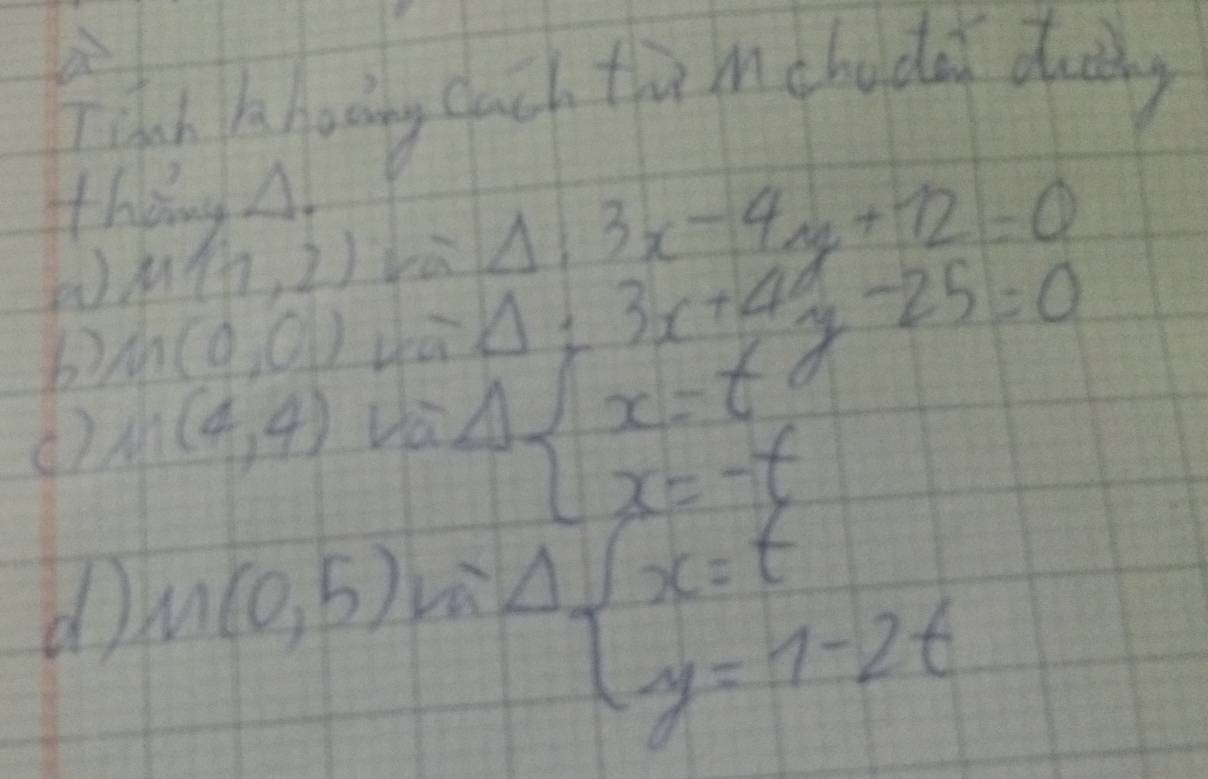 Tính khoảng cách từ M cho đến đường
thẳng Δ.
a) M(1,2) và Δ: 3x-4y+12=0
b) M(0,0) và Δ: 3x+4y-25=0
c) M(4,4) và Δ { x=t
x=-t
d) M(0,5) và Δ { x=t
y=1-2t